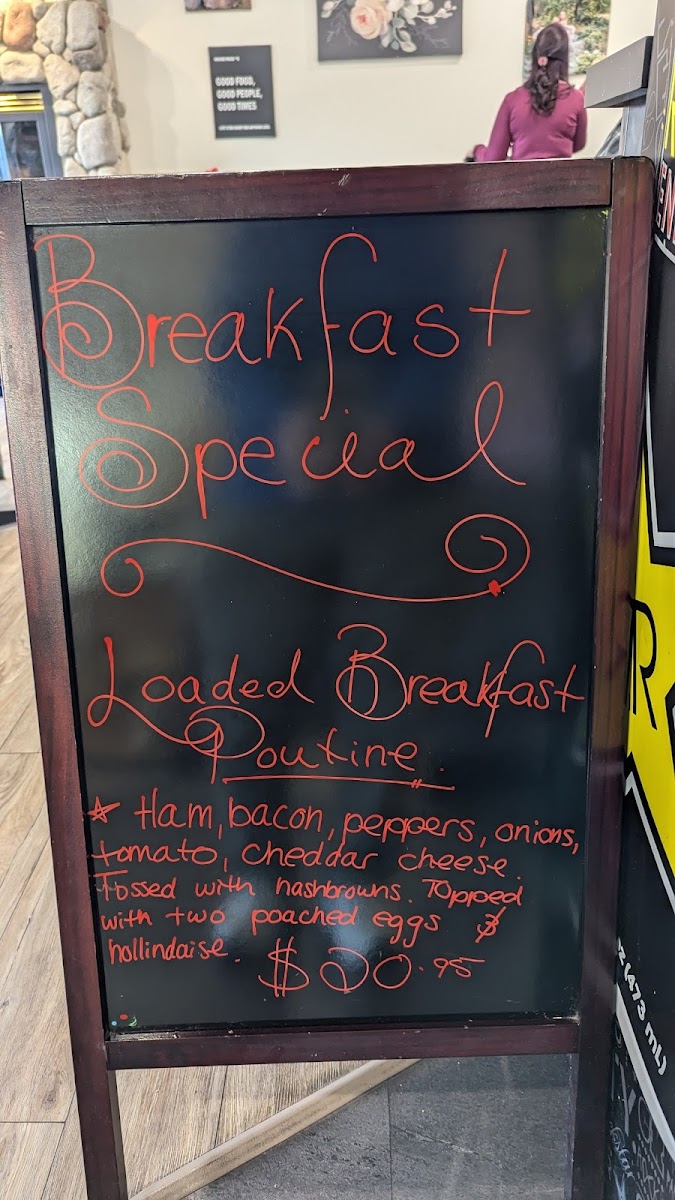 GOOD FOOD,
GOOD PEOPLE,
GOOD TIMES
Breakfast
Special
Loaded Breakfast
Poutine.
* Ham, bacon, peppers, onions,
tomato, cheddar cheese.
Tossed with hashbrowns. Topped
with two poached eggs &
hollindaise. $20.95
R
(473 mL)